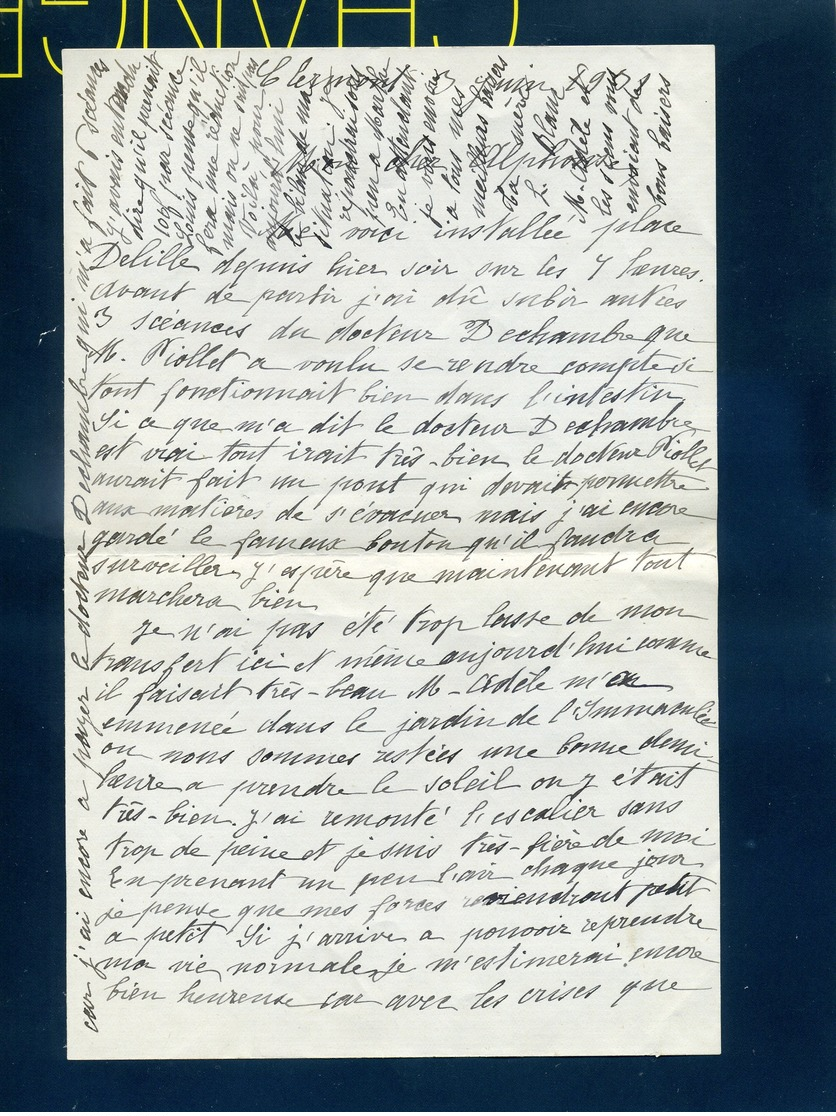 Clermont 3 Juin 1931
Mon cher Alphonse
Me voici installée place
Delille depuis hier soir sur les 7 heures.
Avant de partir j'ai dû subir autres
3 scéances du docteur Dechambre que
M. Piollet a voulu se rendre compte si
tout fonctionnait bien dans l'intestin
Si ce que m'a dit le docteur Dechambre
est vrai tout irait très-bien le docteur Piollet
aurait fait un pont qui devait permettre
aux matières de s'évacuer mais j'ai encore
gardé le fameux bouton qu'il faudra
surveiller j'espère que maintenant tout
marchera bien
Je n'ai pas été trop lasse de mon
transfert ici et même aujourd'hui comme
il faisait très-beau M-Adèle m'a
emmenée dans le jardin de l'Immaculée
ou nous sommes restées une bonne demi-
heure a prendre le soleil on y était
très-bien. J'ai remonté l'escalier sans
trop de peine et je suis très-fière de moi
En prenant un peu l'air chaque jour
je pense que mes forces reviendront petit
a petit Si j'arrive a pouvoir reprendre
ma vie normale, je m'estimerai encore
bien heureuse car avec les crises que
car j'ai encore a payer le docteur Dechambre qui m'a fait 6 scéances
J'avais entendu
dire qu'il prenait
100f par scéance
Louis pense qu'il
fera une réduction
mais on ne sait pas
Voilà pour
aujourd'hui
le bilan de ma
situation je
répondrai sous
peu a Marthe
En attendant
je vous envoie
a tous mes
meilleurs baisers
Ta mère
L. Blanc
M-Adèle et
les siens vous
envoient de
bons baisers